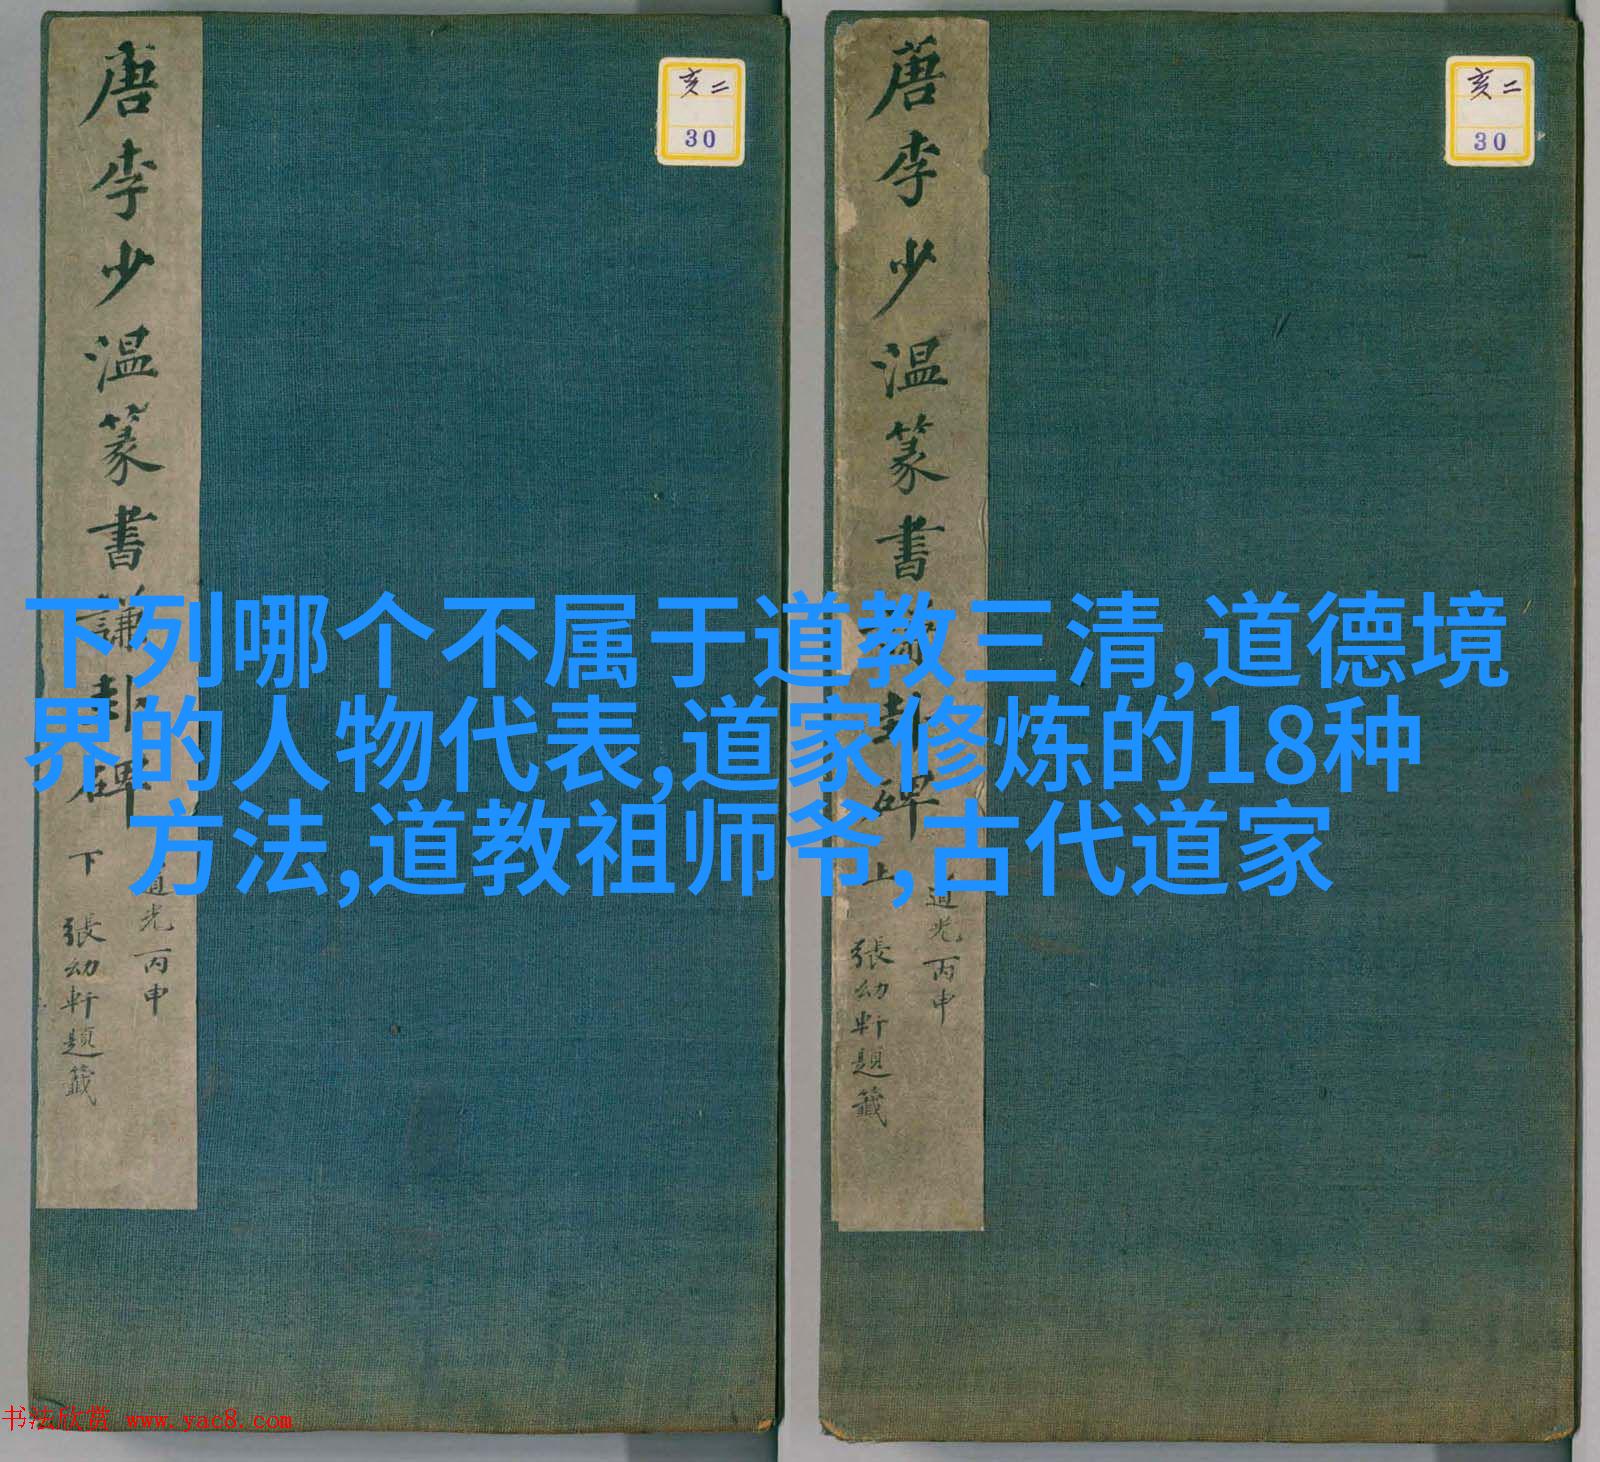 唐李少温篆書謙卦碑 下
道光丙申
張幼軒題籤
亥二
30
唐李少温篆書謙卦碑 上
道光丙申
張幼軒題籤
亥二
30
下列哪个不属于道教三清,道德境
界的人物代表,道家修炼的18种
方法,道教祖师爷,古代道家
书法欣赏 www.yac8.com